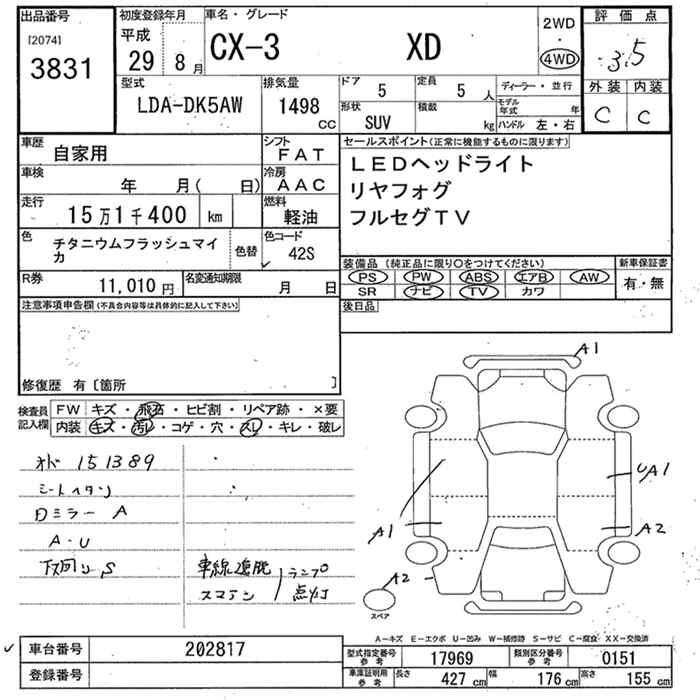 出品番号
[2074]
3831
初度登録年月
平成
29 8月
車名・グレード
CX-3 XD
2WD
・
4WD
評価点
3.5
外装 内装
C C
型式
LDA-DK5AW
排気量
1498
CC
ドア
5
定員
5 人
形状
SUV
積載
kg
ディーラー・並行
モデル年式 年
ハンドル 左・右
車歴
自家用
シフト
FAT
車検
年 月( 日)
冷房
AAC
走行
15万1千400 km
燃料
軽油
色
チタニウムフラッシュマイカ
色替
色コード
42S
R券
11,010 円
名変通知期限
月 日
セールスポイント(正常に機能するものに限ります)
LEDヘッドライト
リヤフォグ
フルセグTV
装備品 (純正品に限り○をつけてください)
PS PW ABS エアB AW
SR ナビ TV カワ
新車保証書
有・無
後日品
注意事項申告欄(不具合内容等は具体的に記入して下さい)
修復歴 有〔箇所 〕
検査員記入欄
FW キズ・飛石・ヒビ割・リペア跡・×要
内装 キズ・汚レ・コゲ・穴・スレ・キレ・破レ
オド 151389
シートヘタリ
ミラー A
A・U
下回り S
車線逸脱
スマテン
ランプ
点灯
A1
UA1
A1
A2
A2
スペア
A-キズ E-エクボ U-凹み W-補修跡 S-サビ C-腐食 XX-交換済
車台番号 202817
登録番号
型式指定番号 参考 17969
類別区分番号 参考 0151
車庫証明用 参考 長さ 427 cm 幅 176 cm 高さ 155 cm